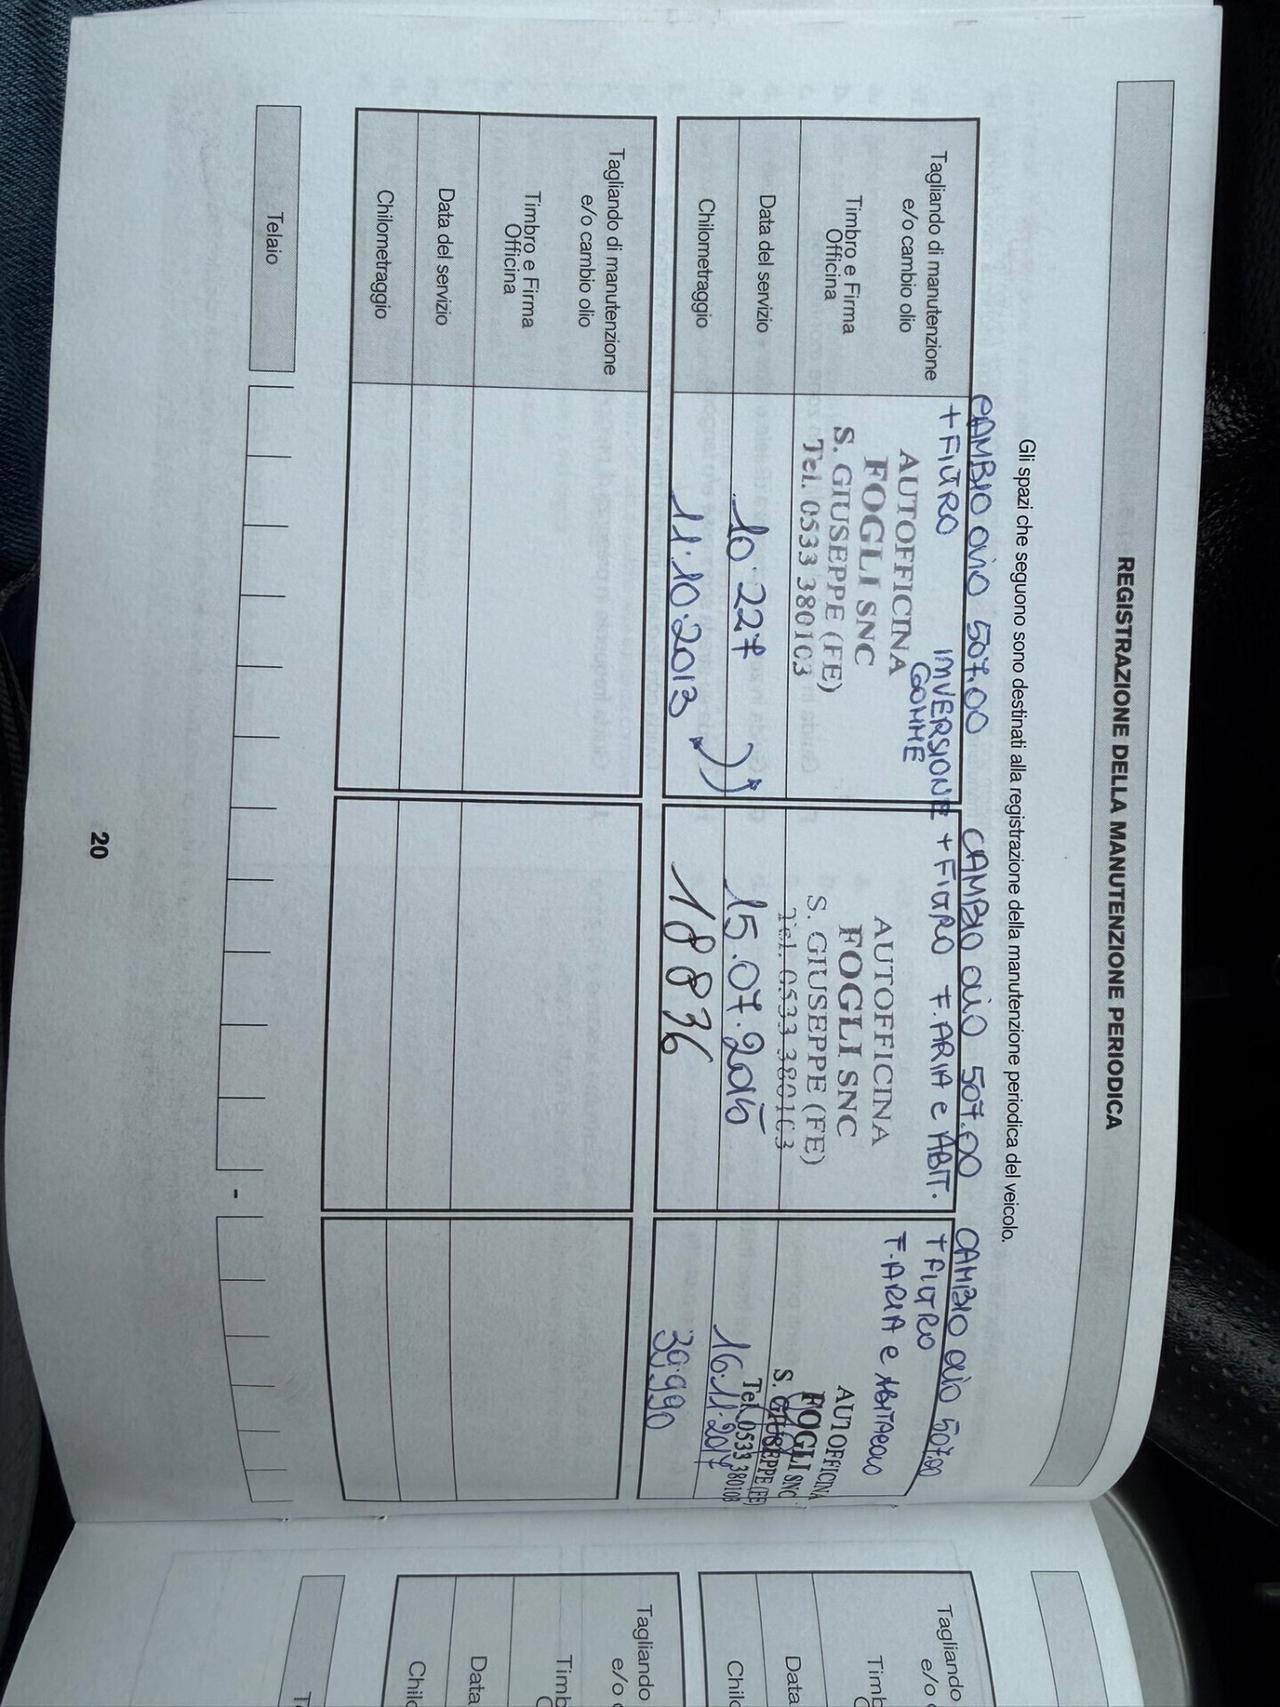 REGISTRAZIONE DELLA MANUTENZIONE PERIODICA
Gli spazi che seguono sono destinati alla registrazione della manutenzione periodica del veicolo.
Tagliando di manutenzione
e/o cambio olio
CAMBIO OLIO 507.00
+ FILTRO
INVERSIONE
GOMME
CAMBIO OLIO 507.00
+ FILTRO F. ARIA e ABIT.
CAMBIO OLIO 507.00
+ FILTRO
F. ARIA e ABITACOLO
Timbro e Firma
Officina
AUTOFFICINA
FOGLI SNC
S. GIUSEPPE (FE)
Tel. 0533 380103
AUTOFFICINA
FOGLI SNC
S. GIUSEPPE (FE)
Tel. 0533 380103
AUTOFFICINA
FOGLI SNC
S. GIUSEPPE (FE)
Tel. 0533 380103
Data del servizio
10.227
15.07.2015
16.11.2017
Chilometraggio
11.10.2013
18836
39.990
Tagliando di manutenzione
e/o cambio olio
Timbro e Firma
Officina
Data del servizio
Chilometraggio
Telaio
-
20
Tagliando
e/o
Timb
Data
Chil
Tagliando
e/o
Timb
Data
Chil